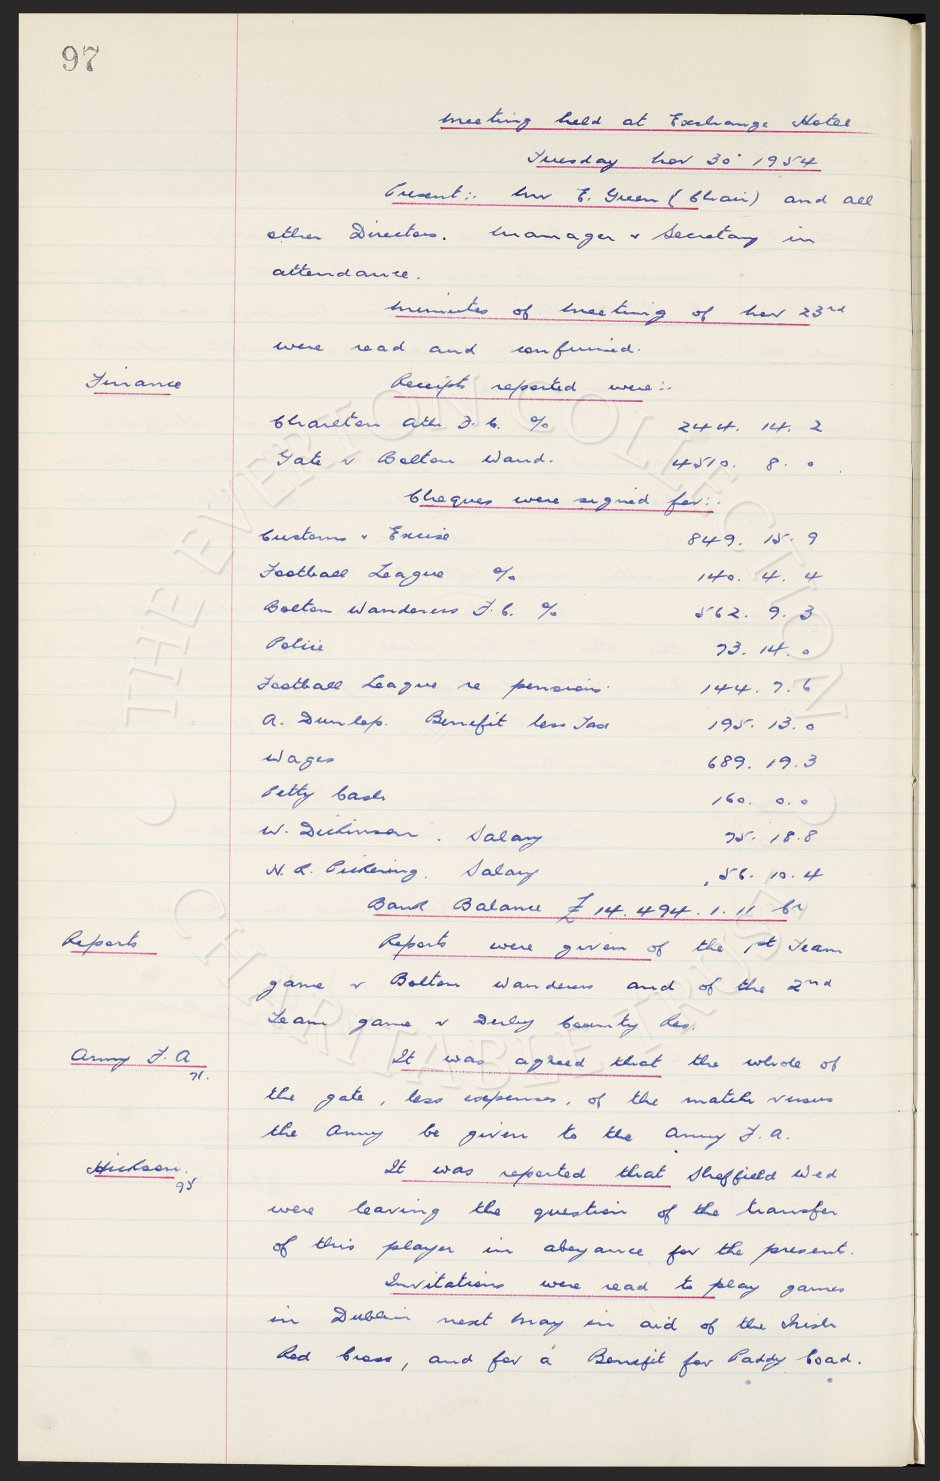 97
Meeting held at Exchange Hotel
Tuesday Nov 30 1954
Present:- Mr E. Green (Chair) and all
other Directors. Manager & Secretary in
attendance.
Minutes of meeting of Nov 23rd
were read and confirmed.
Finance
Receipts reported were:-
Charlton Ath F.C. % 244. 14. 2
Gate v Bolton Wand. 4510. 8. 0
Cheques were signed for:-
Customs & Excise 849. 15. 9
Football League % 140. 4. 4
Bolton Wanderers F.C. % 562. 9. 3
Police 73. 14. 0
Football League re pensions 144. 7. 6
A. Dunlop. Benefit less Tax 195. 13. 0
Wages 689. 19. 3
Petty Cash 160. 0. 0
W. Dickinson. Salary 75. 18. 8
H. R. Pickering. Salary 56. 10. 4
Bank Balance £14.494.1.11 Cr
Reports
Reports were given of the 1st Team
game v Bolton Wanderers and of the 2nd
Team game v Derby County Res.
Army F.A
71.
It was agreed that the whole of
the gate, less expenses, of the match versus
the Army be given to the Army F.A.
Hickson.
95
It was reported that Sheffield Wed
were leaving the question of the transfer
of this player in abeyance for the present.
Invitations were read to play games
in Dublin next May in aid of the Irish
Red Cross, and for a Benefit for Paddy Coad.
THE EVERTON COLLECTION
CHARITABLE TRUST